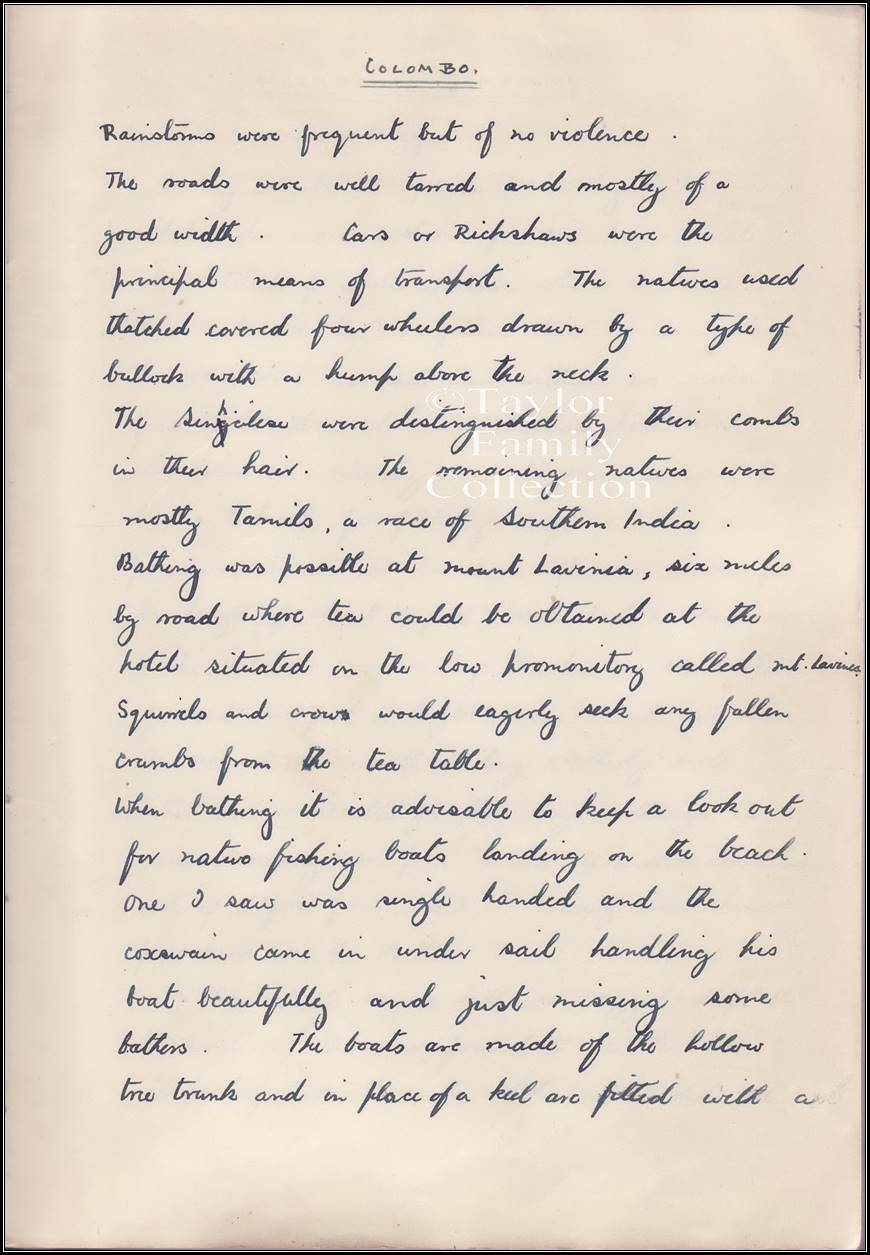 COLOMBO.
Rainstorms were frequent but of no violence.
The roads were well tarred and mostly of a
good width. Cars or Rickshaws were the
principal means of transport. The natives used
thatched covered four wheelers drawn by a type of
bullock with a hump above the neck.
The were distinguished by their combs
in their hair. The remaining natives were
mostly Tamils, a race of Southern India.
Bathing was possible at mount Lavinia, six miles
by road where tea could be obtained at the
hotel situated on the low promonitory called mt. Lavinia.
Squirrels and crows would eagerly seek any fallen
crumbs from the tea table.
When bathing it is advisable to keep a look out
for native fishing boats landing on the beach.
One I saw was single handed and the
coxswain came in under sail handling his
boat beautifully and just missing some
bathers. The boats are made of the hollow
tree trunk and in place of a keel are fitted with a
©Taylor
Family
Collection